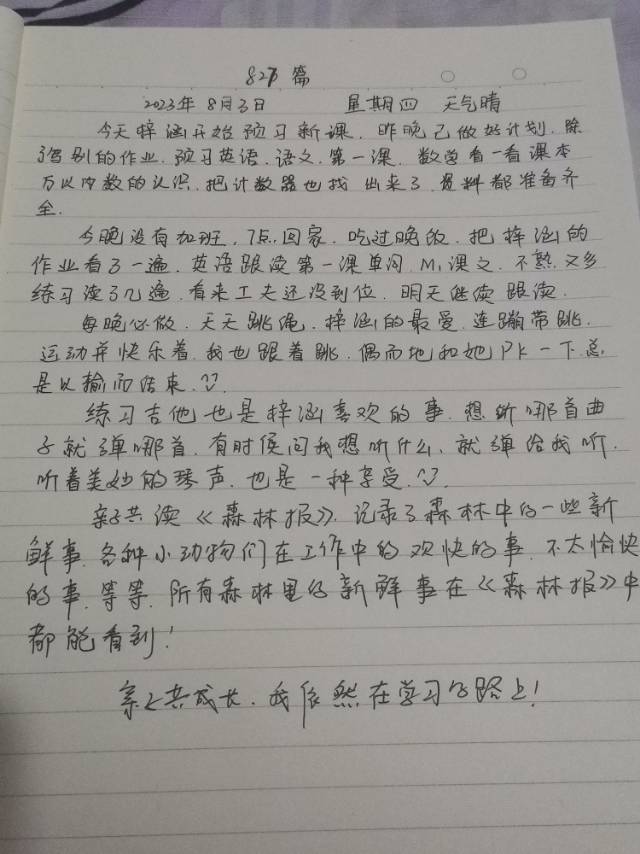 827篇
2023年8月3日 星期四 天气晴
今天梓涵开始预习新课.昨晚已做好计划.除
了留别的作业.预习英语.语文.第一课.数学看一看课本
万以内数的认识.把计数器也找出来了.资料都准备齐
全.
今晚没有加班.7点回家.吃过晚饭.把梓涵的
作业看了一遍.英语跟读第一课单词.M1课文.不熟.又多
练习读了几遍.看来工夫还没到位.明天继续跟读.
每晚必做.天天跳绳.梓涵的最爱.连蹦带跳.
运动并快乐着.我也跟着跳.偶而地和她PK一下.总
是以输而结束.
练习吉他也是梓涵喜欢的事.想听哪首曲
子就弹哪首.有时候问我想听什么.就弹给我听.
听着美妙的琴声.也是一种享受.
亲子共读《森林报》.记录了森林中的一些新
鲜事.各种小动物们在工作中的欢快的事.不太愉快
的事.等等.所有森林里的新鲜事在《森林报》中
都能看到!
亲子共成长.我依然在学习的路上!